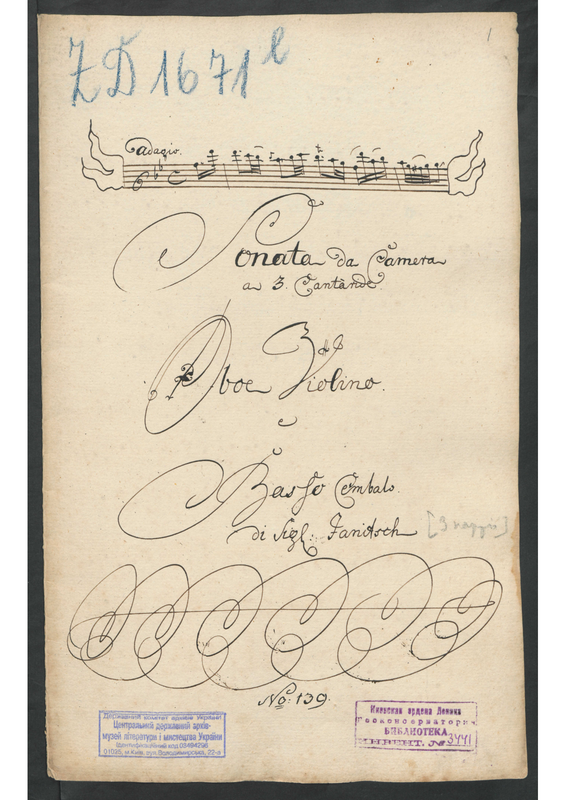 ZD 1671 l
1
Adagio.
Sonata da Camera
a 3. Cantande
Oboe Violino.
e
Basso Cembalo.
di Sigl: Janitsch
[3 партії]
No: 139.
Державний комітет архівів України
Центральний державний архів-
музей літератури і мистецтва України
Ідентифікаційний код 03494296
01025, м.Київ, вул.Володимирська, 22-а
Киевская ордена Ленина
Госконсерватория
БИБЛИОТЕКА
ИНВЕНТ. № 3441